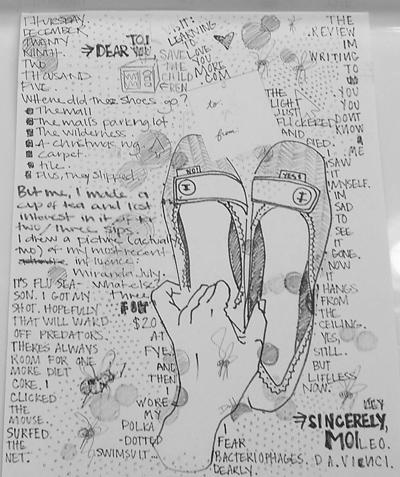 THURSDAY.
DECEMBER
TWENTY
TWO
THOUSAND
FIVE.
Where did these shoes go?
The mall
The mall's parking lot
The wilderness
A christmas rug
Carpet
tile
Plus, they slipped
But me, I made a
cup of tea and lost
interest in it after
two/three sips.
I drew a picture (actually
two) of my most recent
influence:
Miranda July.
IT'S FLU SEA- what else?
SON. I GOT MY three
SHOT. HOPEFULLY FOR
THAT WILL WARD $2.0
OFF PREDATORS. AT
THERES ALWAYS FYE.
ROOM FOR ONE AND
MORE DIET THEN
COKE. I
CLICKED WORE
THE MY
MOUSE. POLKA
SURFED -DOTTED
THE SWIMSUIT...
NET.
DEAR
TO:
YOU
SAVE
THE
CHILD
REN
IT:
LEARNING
TO
LOVE
YOU
MORE
.COM
to:
from:
NOT
YES!
THE
LIGHT
JUST
FLICKERED
AND
DIED.
THE
REVIEW
IM
WRITING
TO
US
YOU
YOU
DONT
KNOW
ME
SAW
IT
MYSELF.
IM
SAD
TO
SEE
IT
GONE.
NOW
IT
HANGS
FROM
THE
CEILING.
YES,
STILL.
BUT
LIFELESS
NOW.
HEY
SINCERELY,
MOI LEO.
D.A.VIENCI.
I
FEAR
BACTERIOPHAGES.
DEARLY.